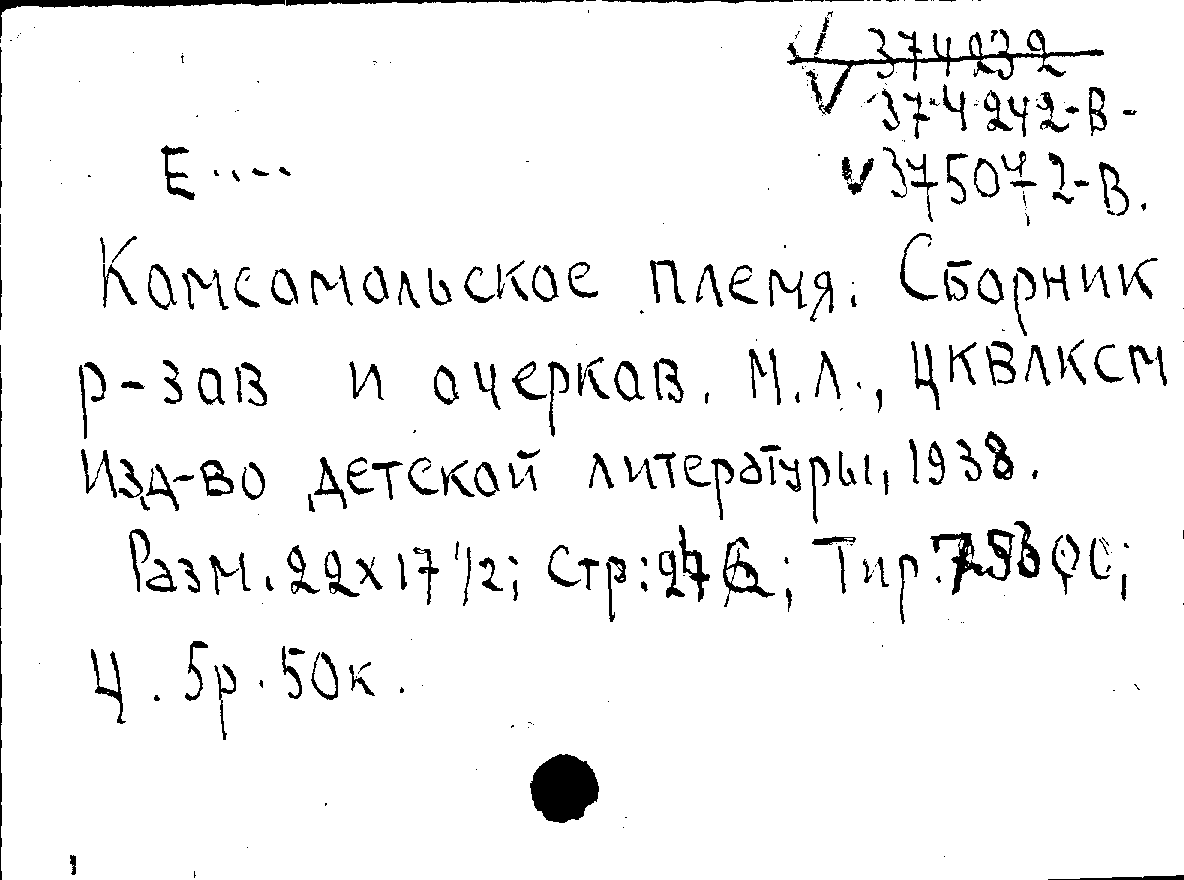 √ 374232
√ 374242-В-
Е....
√ 375072-В.
Комсомольское племя. Сборник
р-зов и очерков. М.Л., ЦКВЛКСМ
Изд-во детской литературы, 1938.
Разм. 22х17 1/2; Стр: ; Тир.
Ц. 5р. 50к.